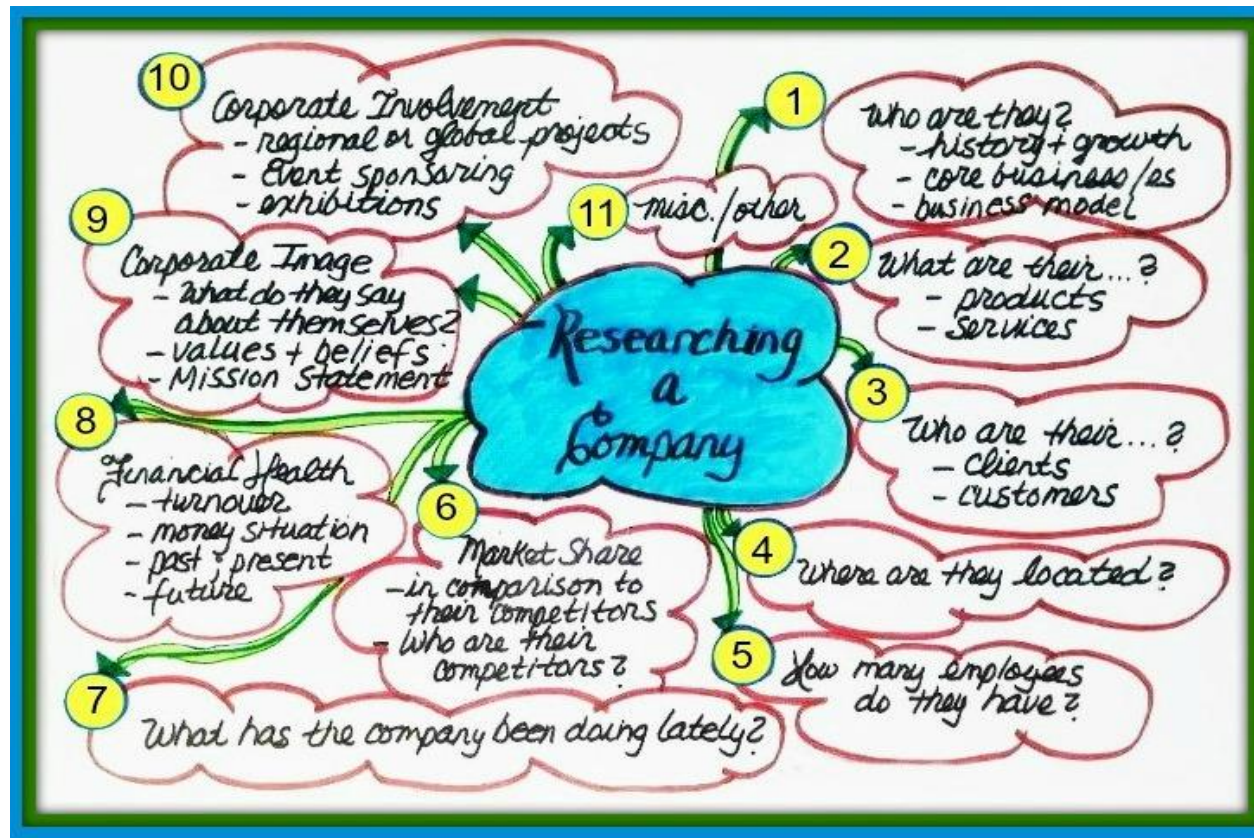 Researching
a
Company
1
Who are they?
- history + growth
- core business/es
- business model
2
What are their...?
- products
- services
3
Who are their...?
- clients
- customers
4
Where are they located?
5
How many employees
do they have?
6
Market Share
- in comparison to
their competitors
- Who are their
competitors?
7
What has the company been doing lately?
8
Financial Health
- turnover
- money situation
- past & present
- future
9
Corporate Image
- What do they say
about themselves?
- values + beliefs
- Mission Statement
10
Corporate Involvement
- regional or global projects
- Event sponsoring
- exhibitions
11
misc./other